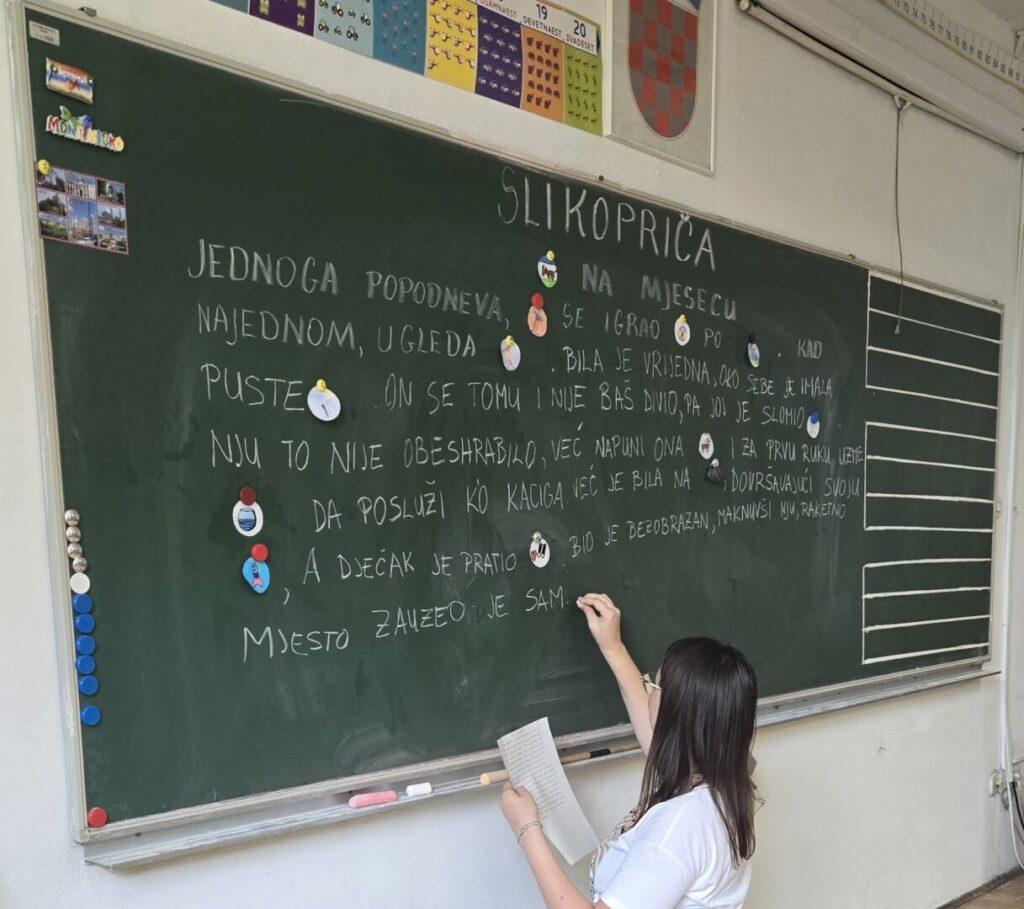 OSAMNAEST
19
DEVETNAEST
20
DVADESET
SLIKOPRIČA
JEDNOGA POPODNEVA, NA MJESECU
SE IGRAO PO . KAD
NAJEDNOM, UGLEDA . BILA JE VRIJEDNA, OKO SEBE JE IMALA
PUSTE . ON SE TOMU I NIJE BAŠ DIVIO, PA JOJ JE SLOMIO
NJU TO NIJE OBESHRABILO, VEĆ NAPUNI ONA I ZA PRVU RUKU, UZME
DA POSLUŽI K'O KACIGA VEĆ JE BILA NA , DOVRŠAVAJUĆI SVOJU
, A DJEČAK JE PRATIO . BIO JE BEZOBRAZAN, MAKNUVŠI NJU, RAKETNO
MJESTO ZAUZEO JE SAM.